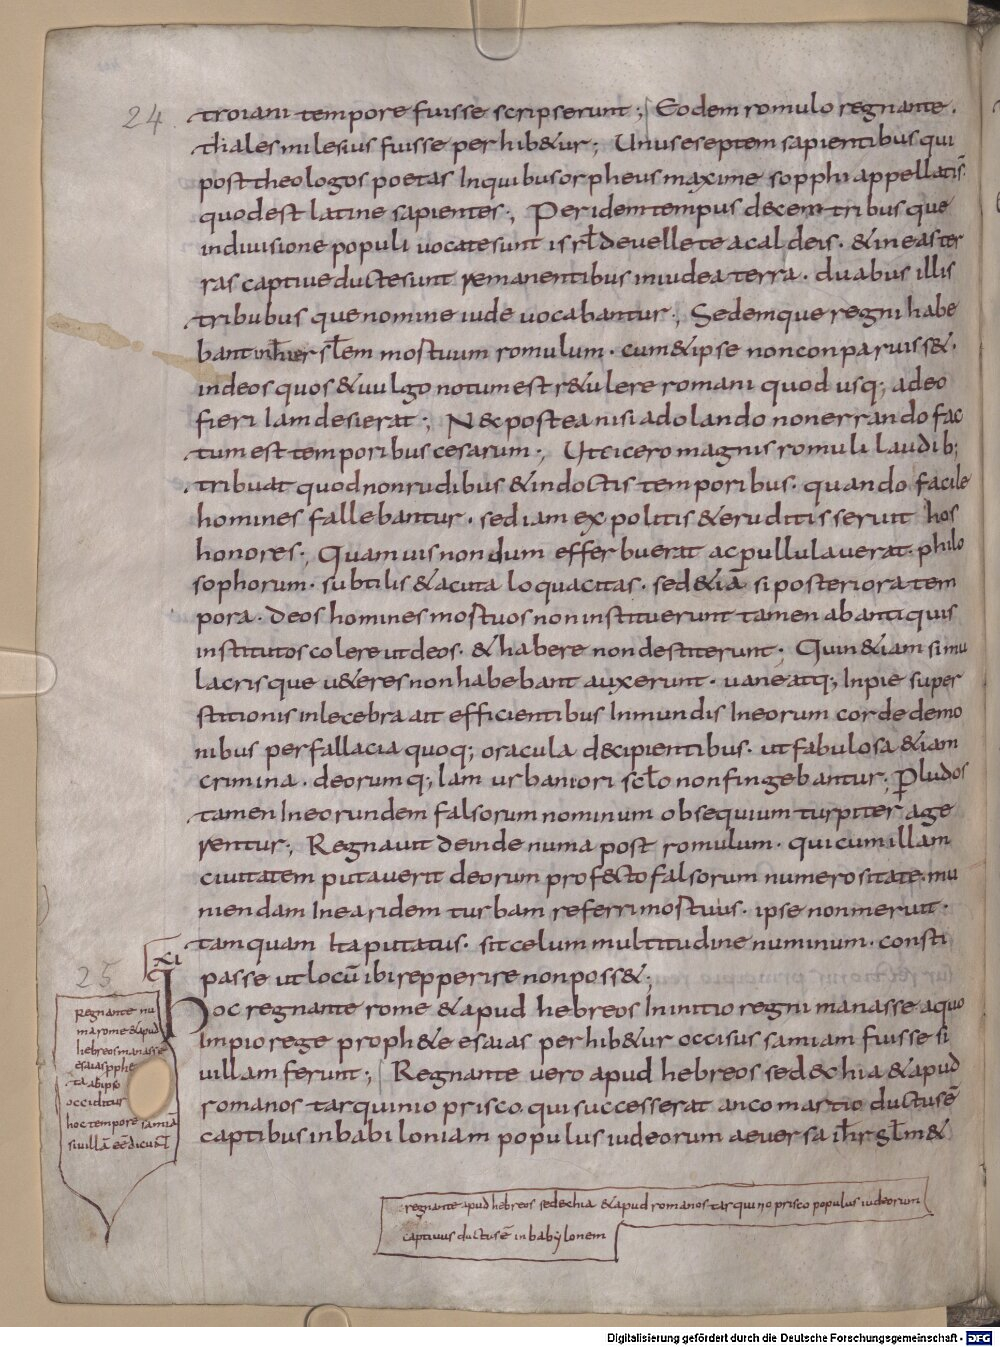 24
troiani tempore fuisse scripserunt; Eodem romulo regnante.
thales milesius fuisse perhib&ur; Unus e septem sapientibus qui
post theologos poetas In quibus orpheus maxime sopphi appellatis̄
quod est latine sapientes; Per idem tempus decem tribus que
in diuisione populi uocate sunt isrl̄ deuellete a caldeis. & in eas ter
ras captiue ducte sunt remanentibus in iudea terra. duabus illis
tribubus que nomine iude uocabantur; Sedemque regni habe
bant in hierslēm mostuum romulum. cum & ipse non conparuiss&.
in deos quos & uulgo notum est r&ulere romani quod usq; adeo
fieri Iam desierat; Nec postea nisi adolando non errando fac
tum est temporibus cesarum; Ut cicero magnis romuli laudib;
tribuat quod non rudibus & indoctis temporibus. quando facile
homines fallebantur. sed iam expolitis & eruditis seruit hos
honores; Quamuis nondum efferbuerat ac pullulauerat. philo
sophorum. subtilis & acuta loquacitas. sed &iā si posteriora tem
pora. deos homines mostuos non instituerunt tamen ab antiquis
institutos colere ut deos. & habere non destiterunt; Quin &iam simu
lacris que u&eres non habebant auxerunt. uane atq; Inpie super
stitionis inlecebra ait efficientibus Inmundis In eorum corde demo
nibus per fallacia quoq; oracula decipientibus. ut fabulosa &iam
crimina. deorumq; Iam urbaniori scl̄o non fingebantur; P̱ ludos
tamen In eorundem falsorum nominum obsequium turpiter age
rentur; Regnauit deinde numa post romulum. qui cum illam
ciuitatem putauerit deorum profecto falsorum numerositate. mu
niendam In earidem turbam referri mostuus. ipse non meruit.
tamquam Ita putatus. sit celum multitudine numinum. consti
passe ut locū ibi repperire non poss&;
25
XI
Hoc regnante rome & apud hebreos In initio regni manasse a quo
Impio rege proph&e esaias perhib&ur occisus samiam fuisse si
uillam ferunt; Regnante uero apud hebreos sedechia & apud
romanos tarquinio prisco. qui successerat anco martio ductus ē
captibus in babiloniam populus iudeorum aeuersa ih̄rsl̄m &
Regnante nu
ma rome & apud
hebreos manasse
esaias pphe
ta ab ipso
occiditur
hoc tempore samiā
siuillā eē dicunt
regnante apud hebreos sedechia & apud romanos tarquino prisco populus iudeorum
captiuus ductus ē in babylonem
Digitalisierung gefördert durch die Deutsche Forschungsgemeinschaft - DFG